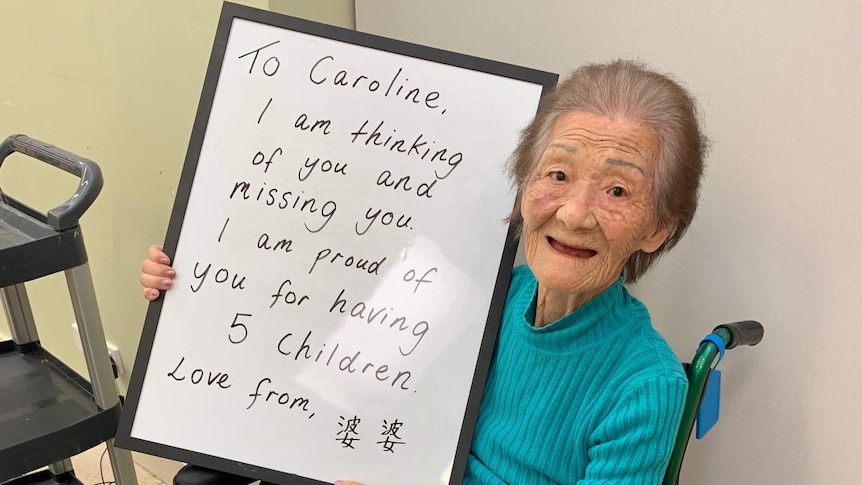 To Caroline,
I am thinking
of you and
missing you.
I am proud of
you for having
5 children.
Love from,
婆婆